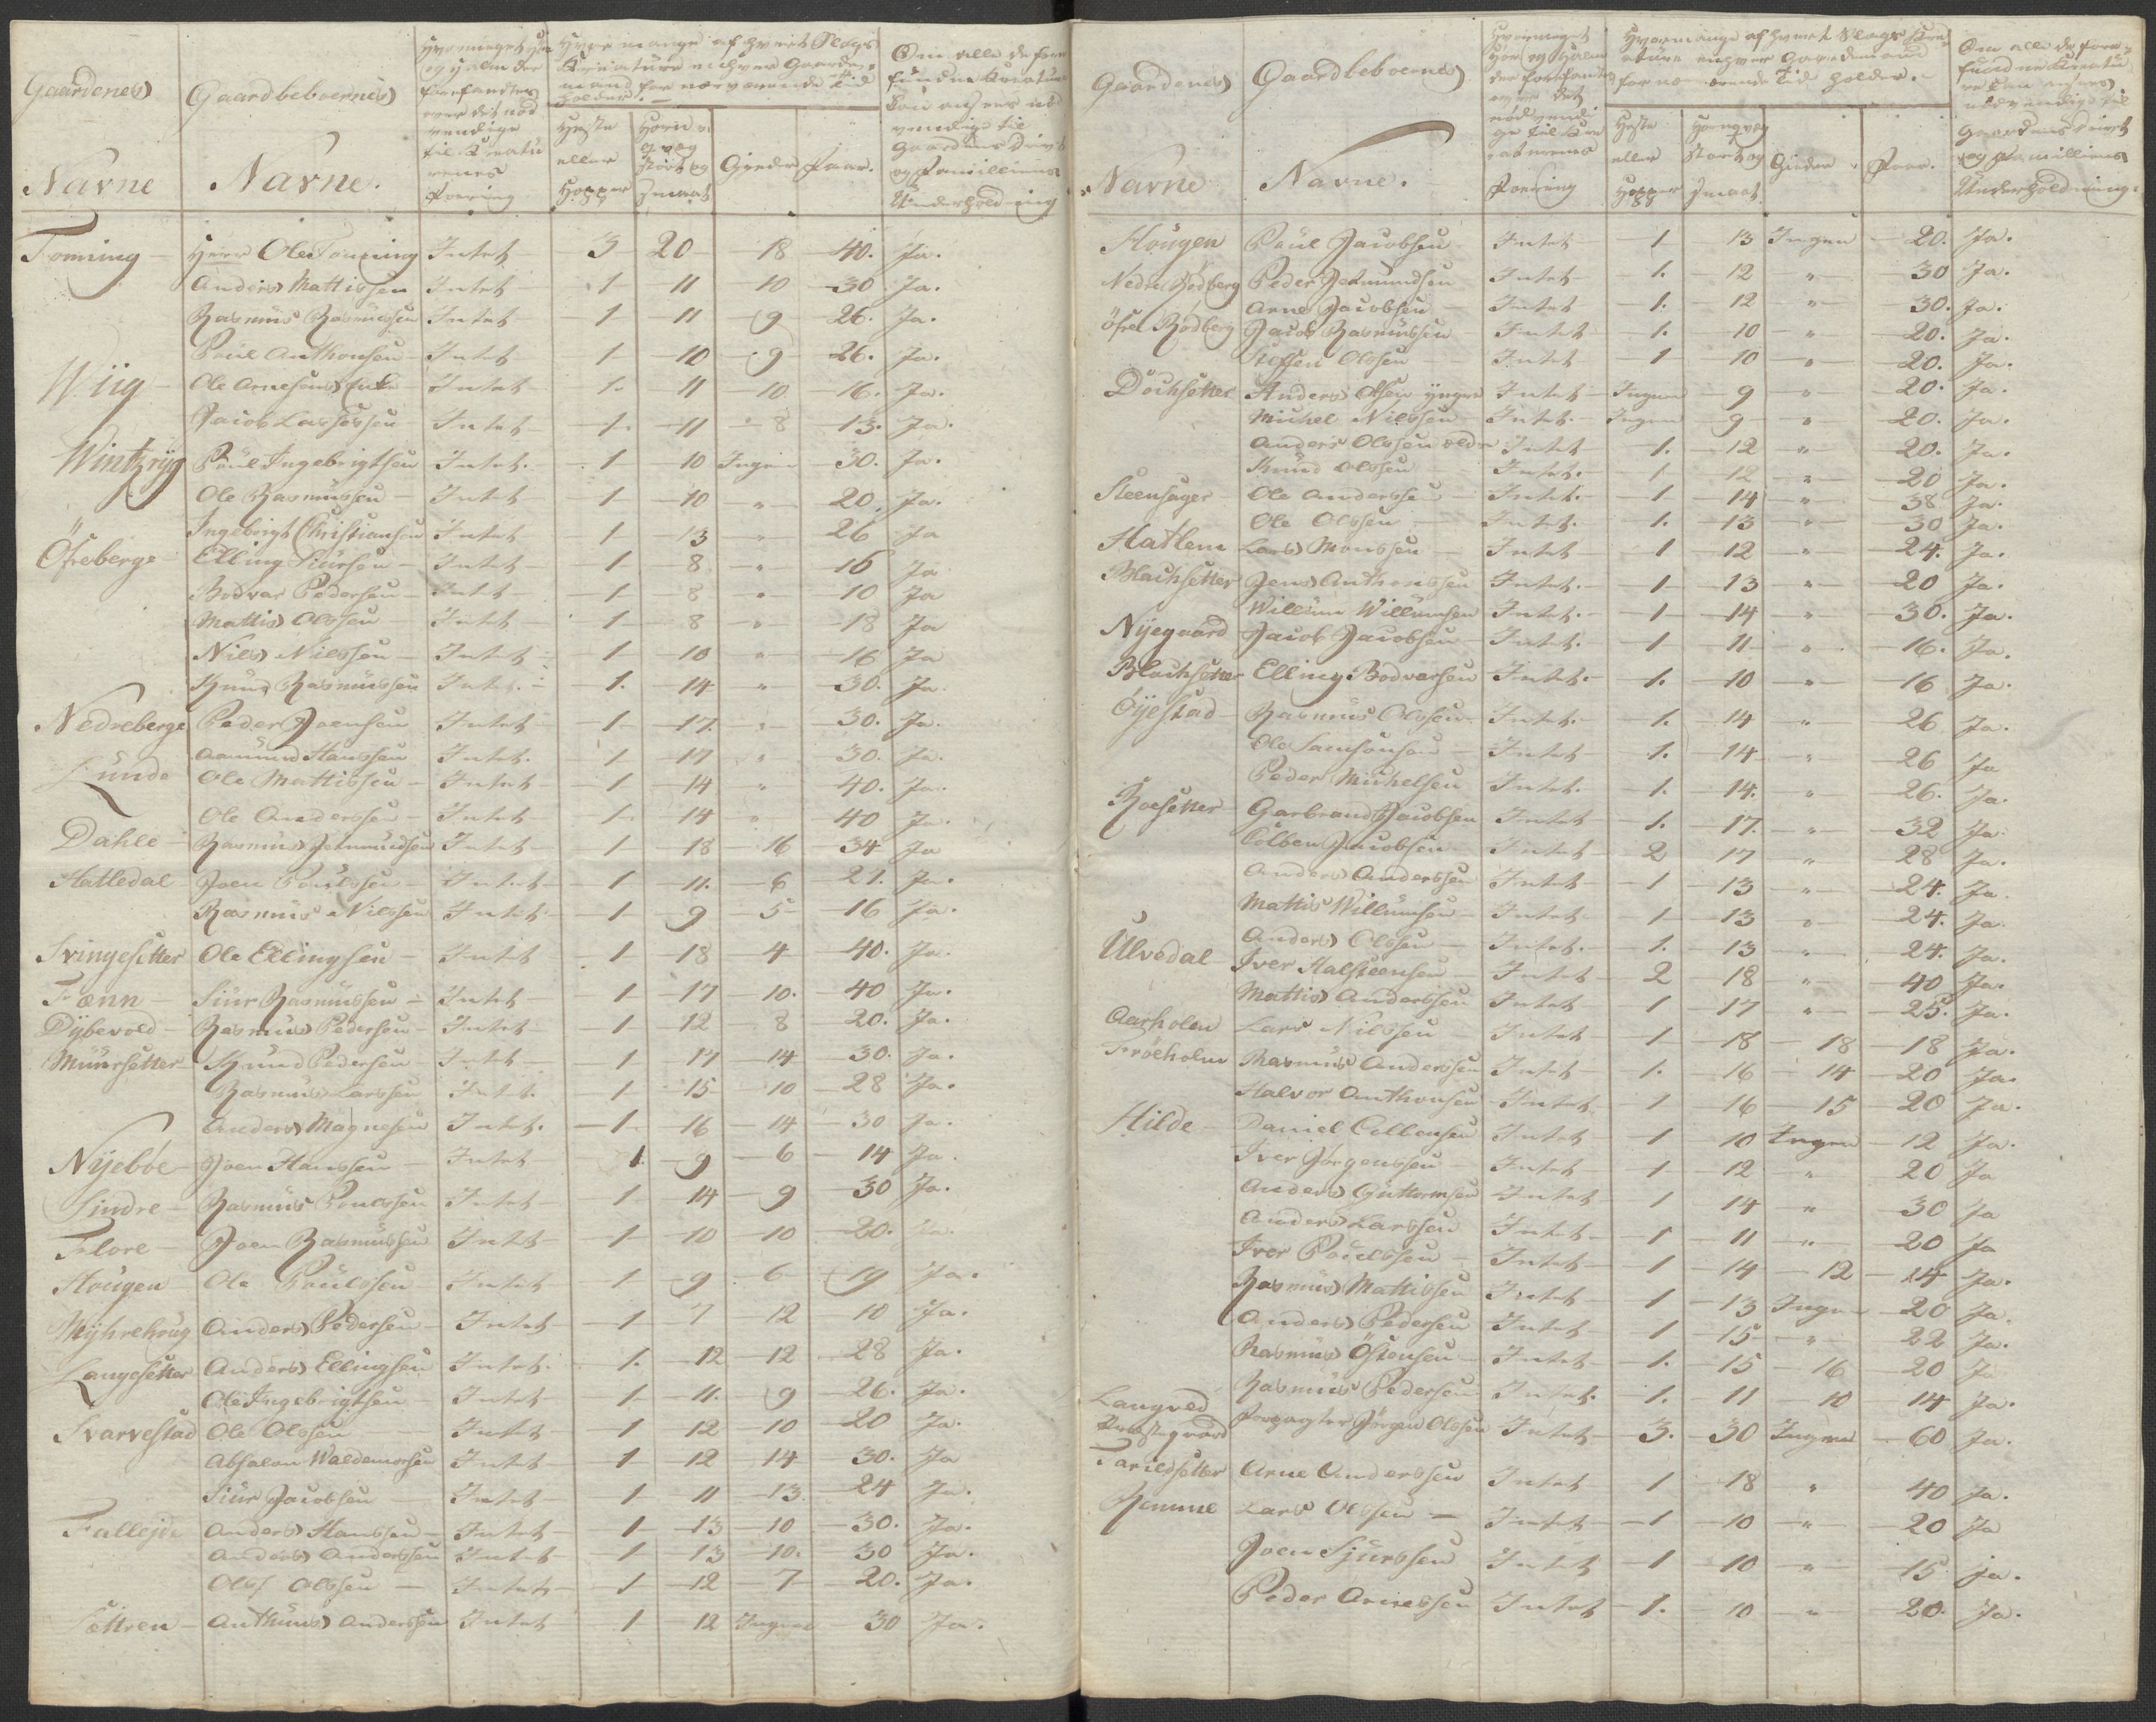 Gaardenes Navne | Gaardbeboernes Navne. | Hvormeget Høe og Halm der forefandtes over det nødvendige til Kreaturenes Foering | Hvor mange af hvert Slags Kreature enhver Gaardemand for nærværende Tid holder. — | Om alle de forefundne Kreature kan ansees nødvendige til Gaardens Drivt og Familliens Underholdning
Heste eller Hopper | Horn qvæg Stort og Smaat | Gieder | Faar.
Tonning — Herr Ole Tonning Intet 3 20 18 40. Ja.
Anders Mattissen Intet 1 11 10 30 Ja.
Rasmus Rasmussen Intet 1 11 9 26. Ja.
Poul Anthonsen Intet 1 10 9 26. Ja.
Wiig — Ole Arnesens Enke Intet 1. 11 10 16. Ja.
Jacob Lassessen Intet 1. 11 8 13. Ja.
Wintzryg Poul Ingebrigtsen Intet. 1 10 Ingen 30. Ja.
Ole Rasmussen Intet 1 10 „ 20. Ja.
Ingebrigt Christiansen Intet 1 13 „ 26 Ja
Öfreberge Elling Siursen Intet 1 8 „ 16 Ja
Bodvar Pedersen Intet 1 8 „ 10 Ja
Mattis Olssen Intet 1 8 „ 18 Ja
Nils Nilssen Intet 1 10 „ 16 Ja
Knud Rasmussen Intet. 1. 14 „ 30. Ja.
Nedreberge Peder Joensen Intet 1 17. „ 30. Ja.
Aamund Hanssen Intet. 1 17 „ 30. Ja.
Lunde Ole Mattissen Intet 1 14 „ 40. Ja.
Ole Anderssen Intet 1. 14 „ 40 Ja.
Dahle Rasmus Jetmundsen Intet 1 18 16 34 Ja
Hatledal Joen Poulssen Intet 1 11. 6 21. Ja.
Rasmus Nilssen Intet 1 9 5 16 Ja.
Svingesetter Ole Ellingsen Intet 1 18 4 40. Ja.
Tænn Siur Rasmussen Intet 1 17 10. 40 Ja.
Dybevold Rasmus Pedersen Intet 1 12 8 20. Ja.
Muursetter Knud Pedersen Intet 1 17 14 30. Ja.
Rasmus Larssen Intet. 1 15 10 28 Ja.
Anders Magnesen Intet. 1. 16 14 30 Ja.
Nijebøe Joen Hanssen Intet 1. 9 6 14 Ja.
Sindre Rasmus Poulssen Intet 1 14 9 30 Ja.
Flore Joen Rasmussen Intet 1 10 10 20. Ja.
Hougen Ole Poulssen Intet 1 9 6 19 Ja.
Myhrehoug Anders Pedersen Intet 1 7 12 10 Ja.
Langesetter Anders Ellingsen Intet. 1. 12 12 28 Ja.
Ole Ingebrigtsen Intet 1 11. 9 26. Ja.
Svarvestad Ole Olssen Intet 1 12 10 20 Ja.
Absalon Waldemorsen Intet 1 12 14 30. Ja
Siur Jacobsen Intet 1 11 13. 24 Ja.
Fallejde Anders Hanssen Intet 1 13 10 30. Ja.
Anders Anderssen Intet 1 13 10. 30 Ja.
Oluf Olssen Intet 1 12 7 20. Ja.
Anthunus Anderssen Intet 1 12 Ingen 30 Ja.
Gaardenes Navne | Gaardbeboernes Navne. | Hvormeget Høe og Halm der forefantes over det nødvendige til Kreaturenes Foering | Hvormange af hvert Slags Kreature enhver Gaardemand for nærværende Tid holder. | Om alle de forefundne Kreature kan ansees nødvendige til Gaardens Drivt og Familliens Underholdning.
Heste eller Hopper | Hornqvæg Stort og Smaat. | Gieder | Faar.
Hougen Poul Jacobsen Intet 1 13 Ingen 20. Ja.
Nedre Rødberg Peder Jetmundsen Intet 1. 12 „ 30 Ja.
Arne Jacobsen Intet 1. 12 „ 30. Ja.
Öfre Rødberg Jacob Rasmussen Intet 1. 10 „ 20. Ja.
Steffen Olssen Intet 1 10 „ 20. Ja.
Döchsetter Anders Olssen yngre Intet Ingen 9 „ 20. Ja.
Michel Nilssen Intet. Ingen 9 „ 20. Ja.
Anders Olssen eldre Intet 1. 12 „ 20. Ja.
Knud Olssen Intet. 1 12 „ 20 Ja.
Steensager Ole Anderssen Intet. 1 14 „ 38 Ja.
Ole Olssen Intet. 1. 13 „ 30 Ja.
Hatlem Lars Monssen Intet 1 12 „ 24. Ja.
Blachsetter Jens Anthonssen Intet. 1 13 „ 20 Ja.
Willum Willumsen Intet. 1 14 „ 30. Ja.
Nijegaard Jacob Jacobsen Intet. 1 11 „ 16. Ja.
Blachsetter Elling Bodvarsen Intet. 1. 10 „ 16 Ja.
Öijestad Rasmus Olssen Intet. 1. 14 „ 26 Ja.
Ole Samsonsen Intet 1. 14 „ 26 Ja
Peder Michelsen Intet. 1. 14. „ 26. Ja.
Roesetter Garbrand Jacobsen Intet 1. 17. „ 32 Ja.
Colben Jacobsen Intet 2 17 „ 28 Ja.
Anders Anderssen Intet 1 13 „ 24. Ja.
Mattis Willumsen Intet 1 13 „ 24. Ja.
Anders Olssen Intet. 1. 13 „ 24. Ja.
Ulvedal Iver Halsteensen Intet 2 18 „ 40 Ja.
Mattis Anderssen Intet 1 17 „ 25. Ja.
Aarholen Lars Nilssen Intet 1 18 18 18 Ja.
Frøeholm Rasmus Anderssen Intet 1. 16 14 20 Ja.
Halvor Anthonsen Intet 1 16 15 20 Ja.
Hilde Daniel Colbensen Intet 1 10 Ingen 12 Ja.
Iver Jørgenssen Intet 1 12 „ 20 Ja
Anders Guttormsen Intet 1 14 „ 30 Ja
Anders Larssen Intet 1 11 „ 20 Ja
Iver Poulssen Intet 1 14 12 14 Ja.
Rasmus Mattissen Intet 1 13 Ingen 20 Ja.
Anders Pedersen Intet 1 15 „ 22 Ja.
Rasmus Östensen Intet 1. 15 16 20 Ja
Rasmus Pedersen Intet. 1. 11 10 14 Ja.
Langved Præstegaard Forpagter Jørgen Olssen Intet 3. 30 Ingen 60 Ja.
Tarildsetter Arne Anderssen Intet 1 18 „ 40 Ja.
Remme Lars Olssen Intet 1 10 „ 20 Ja
Joen Sjurssen Intet 1 10 „ 15 ja.
Peder Arnessen Intet 1. 10 „ 20. Ja.